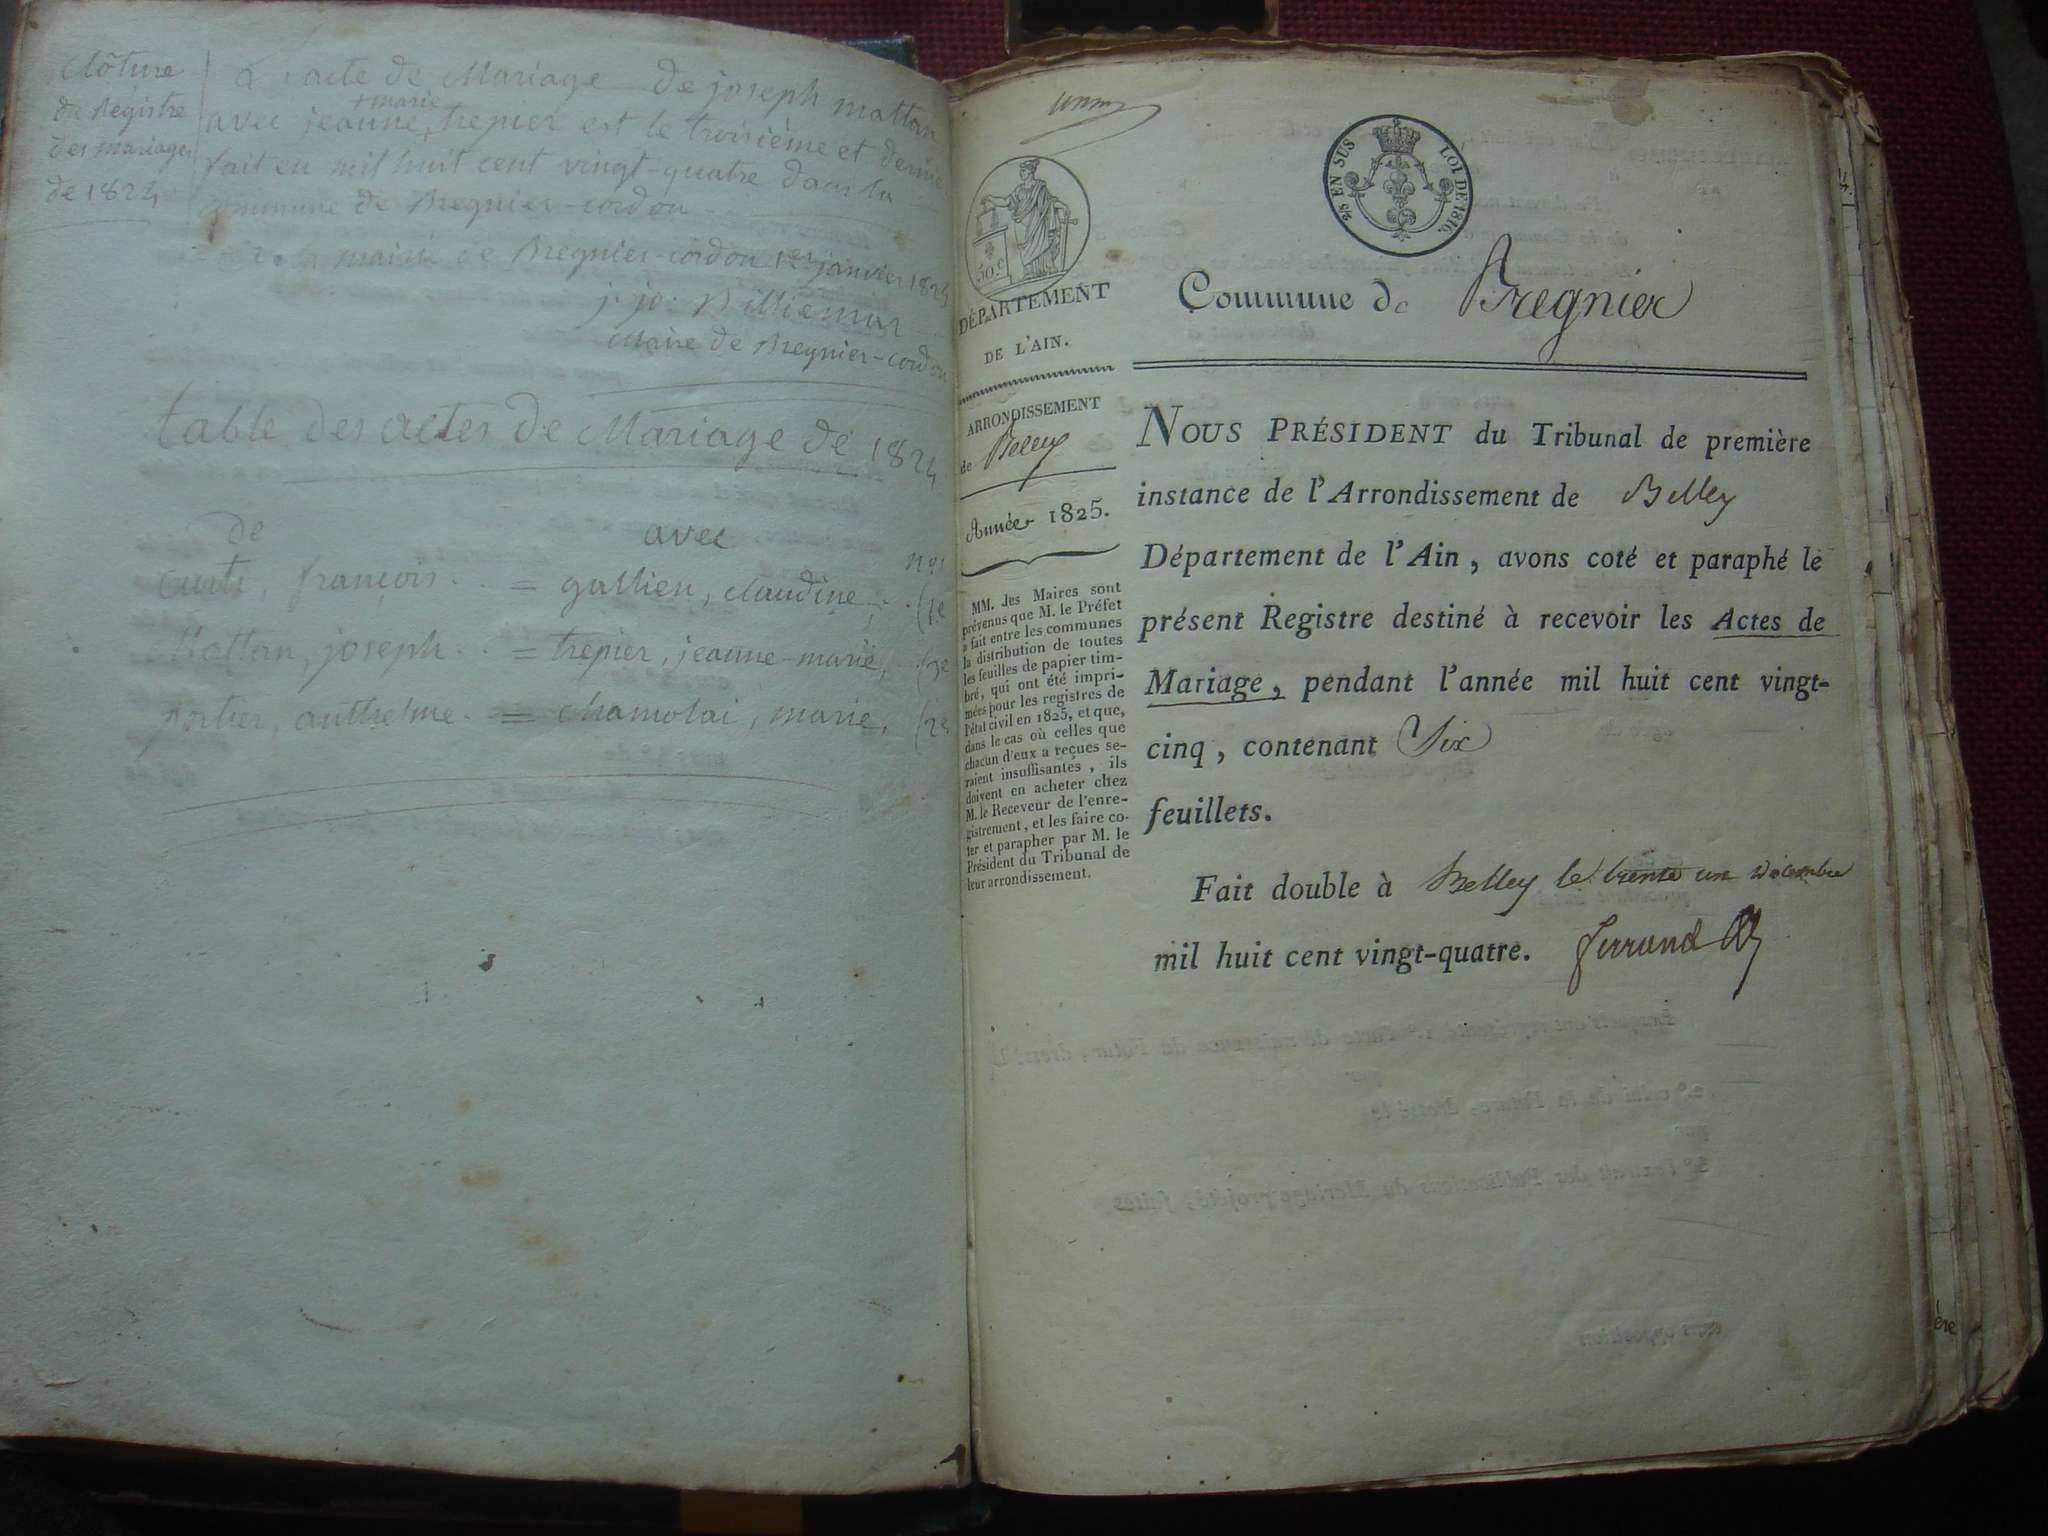 Clôture
du Registre
des mariages
de 1824
acte de Mariage de joseph mattan
marie
avec jeanne trepier est le troisième et dernie
fait en mil huit cent vingt-quatre dans la
commune de Bregnier-cordon
mairie de Bregnier-cordon 1er janvier 182
j. jo. Billiemaz
Maire de Bregnier-cordon
table des actes de Mariage de 1824
de avec nos
curti, francois.. = gallien, claudine, (1e
Mattan, joseph.. = trepier, jeanne-marie, (3e
portier, anthelme. = chamolai, marie, (2e
50.c
DÉPARTEMENT
DE L'AIN.
ARRONDISSEMENT
de Belley
Année 1825.
MM. les Maires sont
prévenus que M. le Préfet
a fait entre les communes
la distribution de toutes
les feuilles de papier tim-
bré, qui ont été impri-
mées pour les registres de
l'état civil en 1825, et que,
dans le cas où celles que
chacun d'eux a reçues se-
raient insuffisantes, ils
doivent en acheter chez
M. le Receveur de l'enre-
gistrement, et les faire co-
ter et parapher par M. le
Président du Tribunal de
leur arrondissement.
EN SUS LOI DE 1816.
Commune de Bregnier
NOUS PRÉSIDENT du Tribunal de première
instance de l'Arrondissement de Belley
Département de l'Ain, avons coté et paraphé le
présent Registre destiné à recevoir les Actes de
Mariage, pendant l'année mil huit cent vingt-
cinq, contenant Six
feuillets.
Fait double à Belley le trente un Décembre
mil huit cent vingt-quatre. ferrand